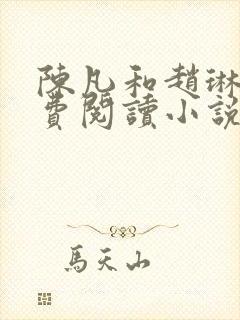 陳凡和趙琳
費閱讀小說
馬天山